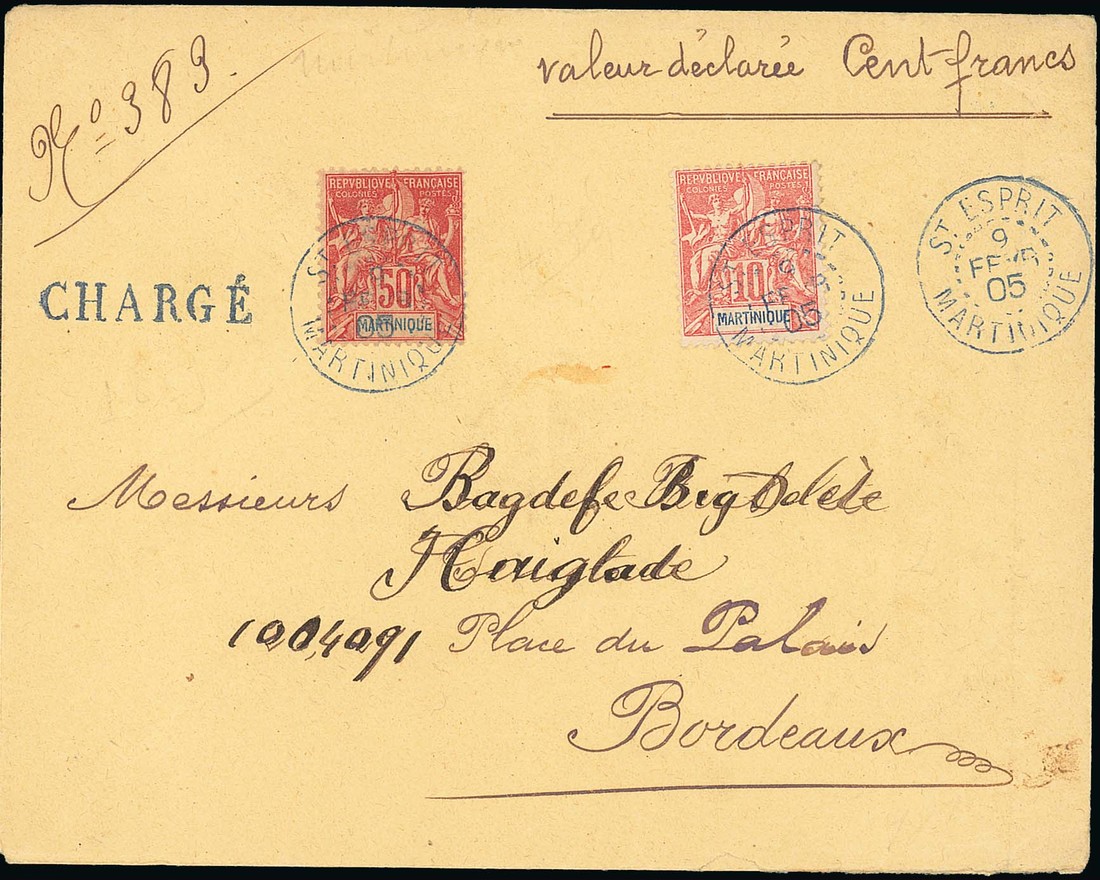 No 383.
valeur déclarée Cent francs
REPUBLIQUE FRANÇAISE
COLONIES POSTES
50
MARTINIQUE
REPUBLIQUE FRANÇAISE
COLONIES POSTES
10
MARTINIQUE
ST ESPRIT
9
FEVR
05
MARTINIQUE
ST ESPRIT
9
FEVR
05
MARTINIQUE
ST ESPRIT
9
FEVR
05
MARTINIQUE
CHARGÉ
Messieurs
Place du Palais
Bordeaux